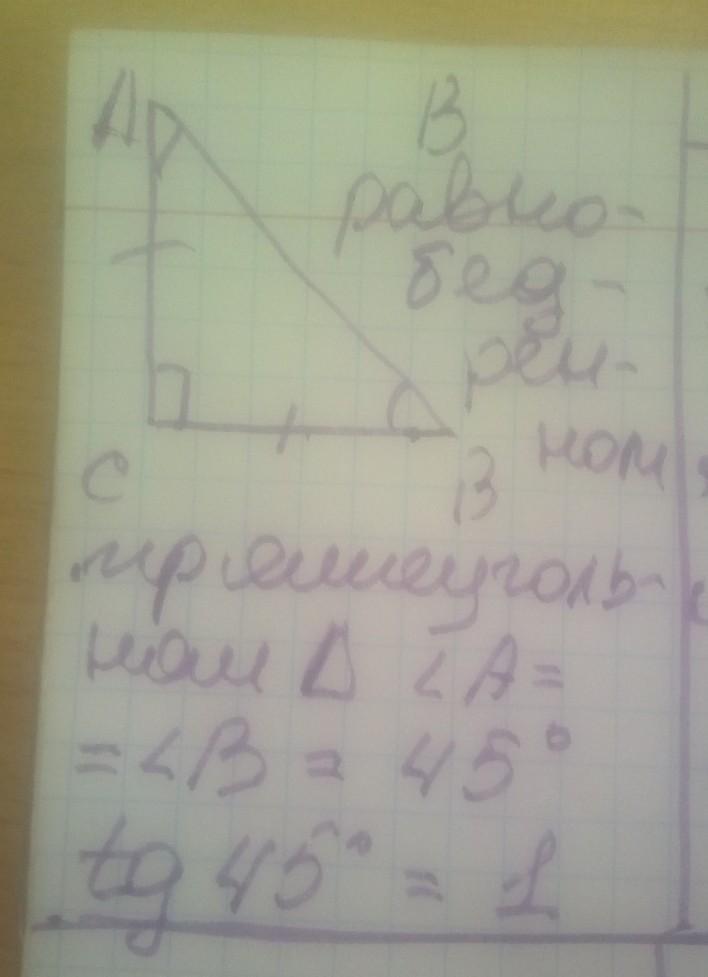 A
В
равно-
бед-
рен-
ном
C
B
прямоуголь-
ном Δ ∠A =
= ∠B = 45°
tg 45° = 1